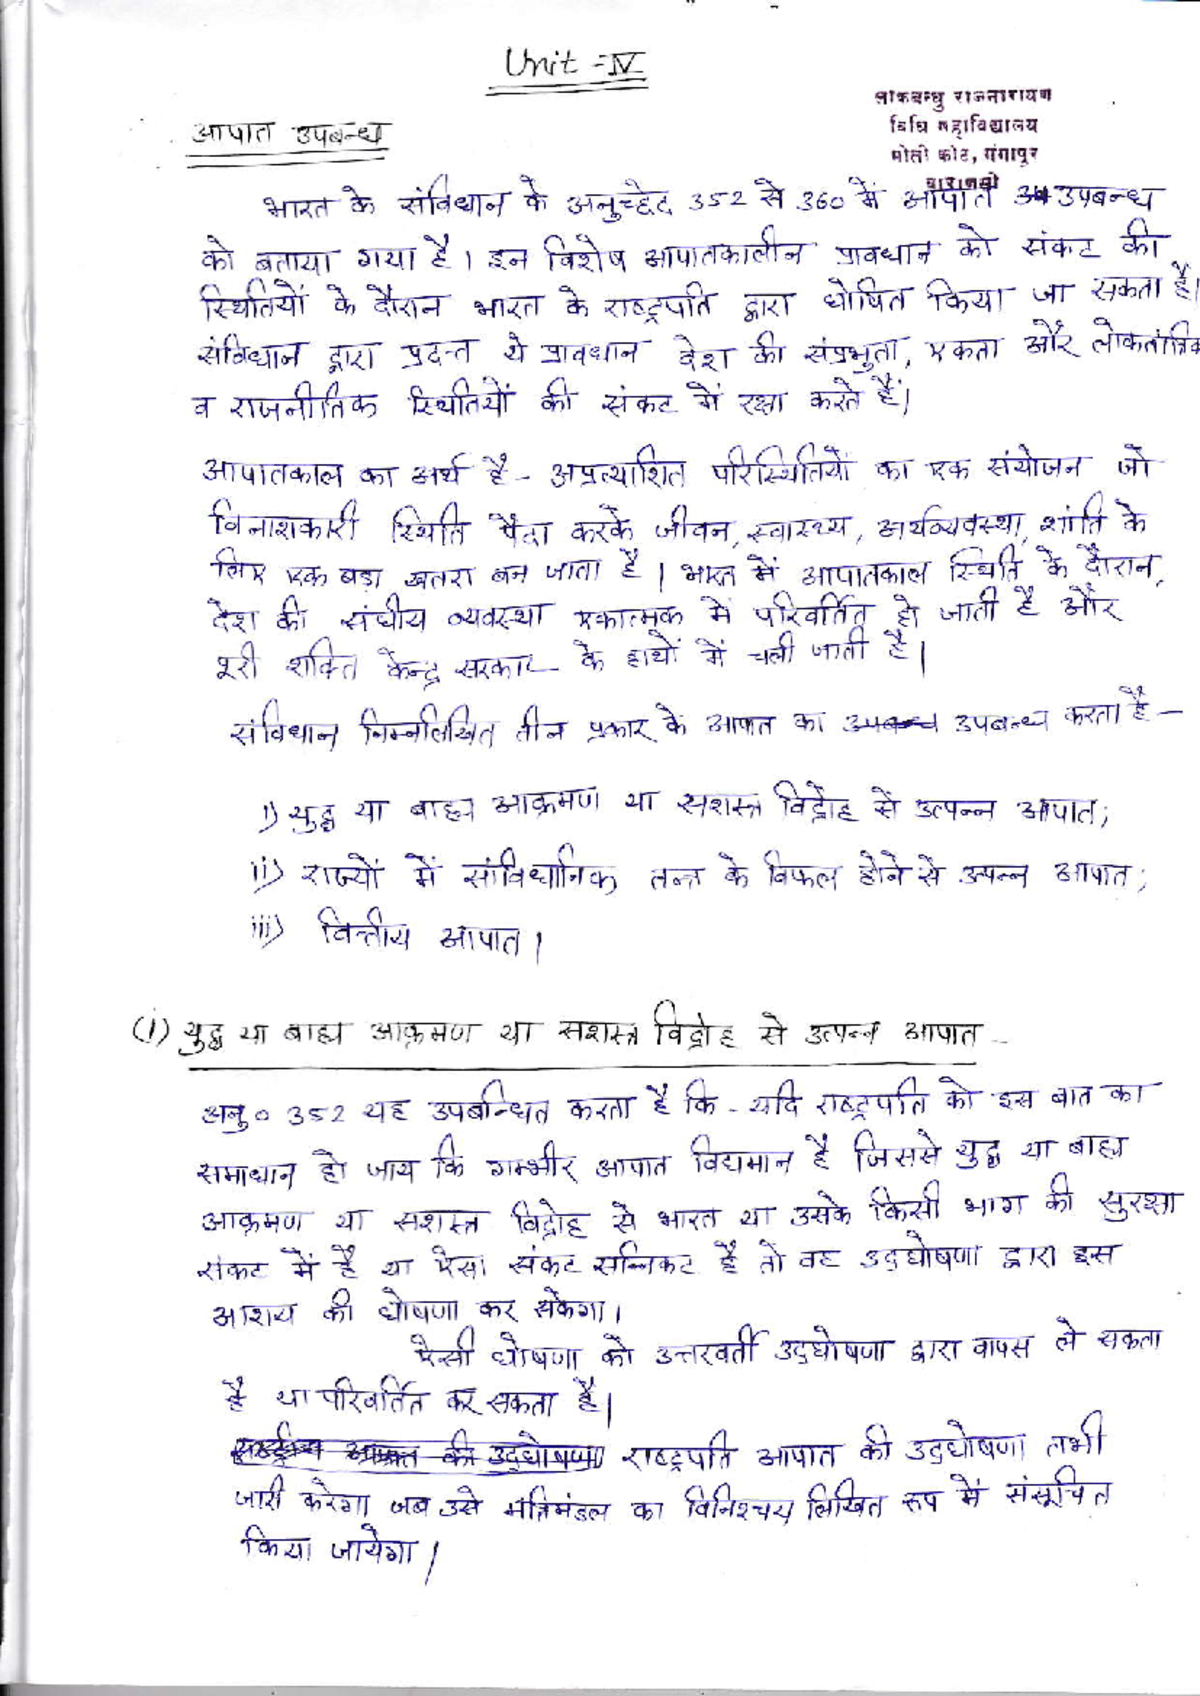 Unit - IV
लोकबन्धु राजनारायण
विधि महाविद्यालय
मोती कोट, गंगापुर
वाराणसी
आपात उपबन्ध
भारत के संविधान के अनुच्छेद 352 से 360 में आपात उपबन्ध
को बताया गया है। इन विशेष आपातकालीन प्रावधान को संकट की
स्थितियों के दौरान भारत के राष्ट्रपति द्वारा घोषित किया जा सकता है।
संविधान द्वारा प्रदत्त ये प्रावधान देश की संप्रभुता, एकता और लोकतांत्रिक
व राजनीतिक स्थितियों की संकट में रक्षा करते हैं।
आपातकाल का अर्थ है - अप्रत्याशित परिस्थितियों का एक संयोजन जो
विनाशकारी स्थिति पैदा करके जीवन, स्वास्थ्य, अर्थव्यवस्था, शांति के
लिए एक बड़ा खतरा बन जाता है। भारत में आपातकाल स्थिति के दौरान,
देश की संघीय व्यवस्था एकात्मक में परिवर्तित हो जाती है और
पूरी शक्ति केन्द्र सरकार के हाथों में चली जाती है।
संविधान निम्नलिखित तीन प्रकार के आपात का उपबन्ध उपबन्ध करता है -
i) युद्ध या बाह्य आक्रमण या सशस्त्र विद्रोह से उत्पन्न आपात;
ii) राज्यों में सांविधानिक तन्त्र के विफल होने से उत्पन्न आपात;
iii) वित्तीय आपात।
(i) युद्ध या बाह्य आक्रमण या सशस्त्र विद्रोह से उत्पन्न आपात -
अनु० 352 यह उपबन्धित करता है कि - यदि राष्ट्रपति को इस बात का
समाधान हो जाय कि गम्भीर आपात विद्यमान है जिससे युद्ध या बाह्य
आक्रमण या सशस्त्र विद्रोह से भारत या उसके किसी भाग की सुरक्षा
संकट में है या ऐसा संकट सन्निकट है तो वह उद्घोषणा द्वारा इस
आशय की घोषणा कर सकेगा।
ऐसी घोषणा को उत्तरवर्ती उद्घोषणा द्वारा वापस ले सकता
है या परिवर्तित कर सकता है।
आपात की उद्घोषणा राष्ट्रपति आपात की उद्घोषणा तभी
जारी करेगा जब उसे मंत्रिमंडल का विनिश्चय लिखित रूप में संसूचित
किया जायेगा।